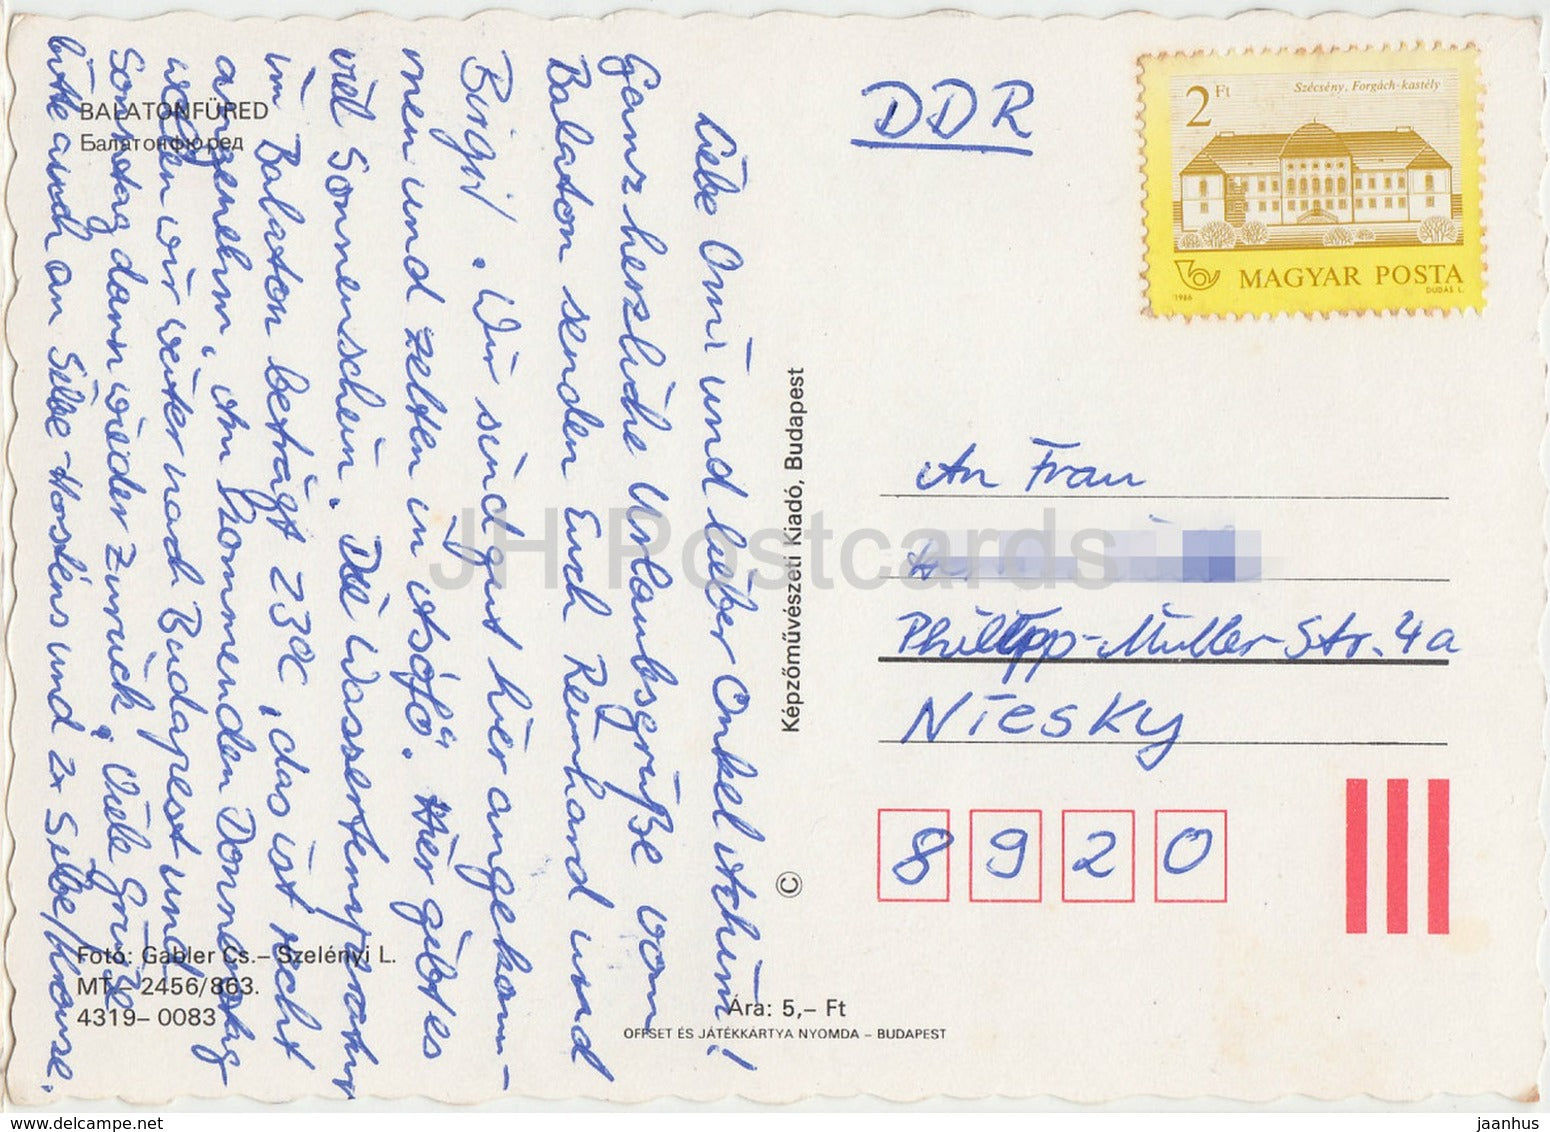 BALATONFÜRED
Балатонфюред
Liebe Omi und lieber Onkel Achim!
Ganz herzliche Urlaubsgrüße vom
Balaton senden Euch Reinhard und
Birgit. Wir sind gut hier angekom-
men und zelten in Alsóörs. Hier gibt es
viel Sonnenschein. Die Wassertemperatur
im Balaton beträgt 23°C, das ist recht
angenehm. Am kommenden Donnerstag
wollen wir weiter nach Budapest und
Sonntag dann wieder zurück. Viele Grüße
bitte auch an Silke - Horstens und 2x Silke/Krause.
Fotó: Gábler Cs.– Szelényi L.
MT – 2456/863.
4319– 0083
Ára: 5,– Ft
OFFSET ÉS JÁTÉKKÁRTYA NYOMDA – BUDAPEST
Képzőművészeti Kiadó, Budapest
©
JH Postcards
DDR
2 Ft
Szécsény, Forgách-kastély
MAGYAR POSTA
1986
DUDÁS L.
An Frau
Phillipp-Müller-Str. 4a
Niesky
8920
delcampe.net
jaanhus